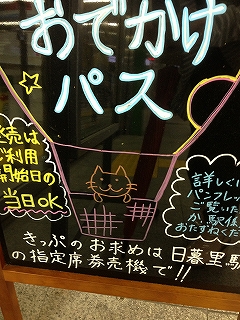 おでかけ
パス
売は
ご利用
開始日の
当日OK
詳しくは
パンフレッ
ご覧いた
か、駅係
おたずねくだ
きっぷのお求めは日暮里駅
の指定席券売機で!!